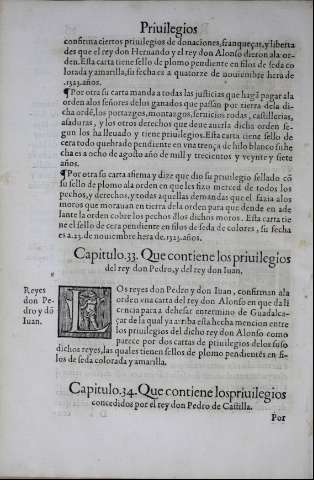 Priuilegios
confirma ciertos priuilegios de donaciones, franqueças, y liberta
des que el rey don Hernando y el rey don Alonso dieron ala or-
den. Esta carta tiene sello de plomo pendiente en filos de seda co
lorada y amarilla, su fecha es a quatorze de nouiembre hera de
.1323. años.
¶Por otra su carta manda a todas las justicias que hagã pagar ala
orden alos señores delos ganados que passan por tierra dela di-
cha ordẽ, los portazgos, montazgos, seruicios rodas, castillerias,
assaduras, y los otros derechos que deue auerla dicha orden se-
gun los ha lleuado y tiene priuilegios. Esta carta tiene sello de
cera todo quebrado pendiente en vna trença de hilo blanco su fe
cha es a ocho de agosto año de mill y trecientos y veynte y siete
años.
¶Por otra su carta afirma y dize que dio su priuilegio sellado cõ
su sello de plomo ala orden en que les hizo merced de todos los
pechos, y derechos, y todas aquellas demandas que el fazia alos
moros que morauan en tierra dela orden para que dende en ade
lante la orden cobre los pechos dlos dichos moros. Esta carta tie
ne el sello de cera pendiente en filos de seda de colores, su fecha
es a.23. de nouiembre hera de.1325. años.
Capitulo.33. Que contiene los priuilegios
del rey don Pedro, y del rey don Iuan.
Reyes
don Pe-
dro y dõ
Iuan.
LOs reyes don Pedro y don Iuan, confirman ala
orden vna carta del rey don Alonso en que da li
cencia para adehesar entermino de Guadalca-
çar de la qual ya arriba esta hecha mencion entre
los priuilegios del dicho rey don Alonso como
parece por dos cartas de priuilegios delos suso
dichos reyes, las quales tienen sellos de plomo pendientes en fi-
los de seda colorada y amarilla.
Capitulo.34. Que contiene los priuilegios
concedidos por el rey don Pedro de Castilla.
Por